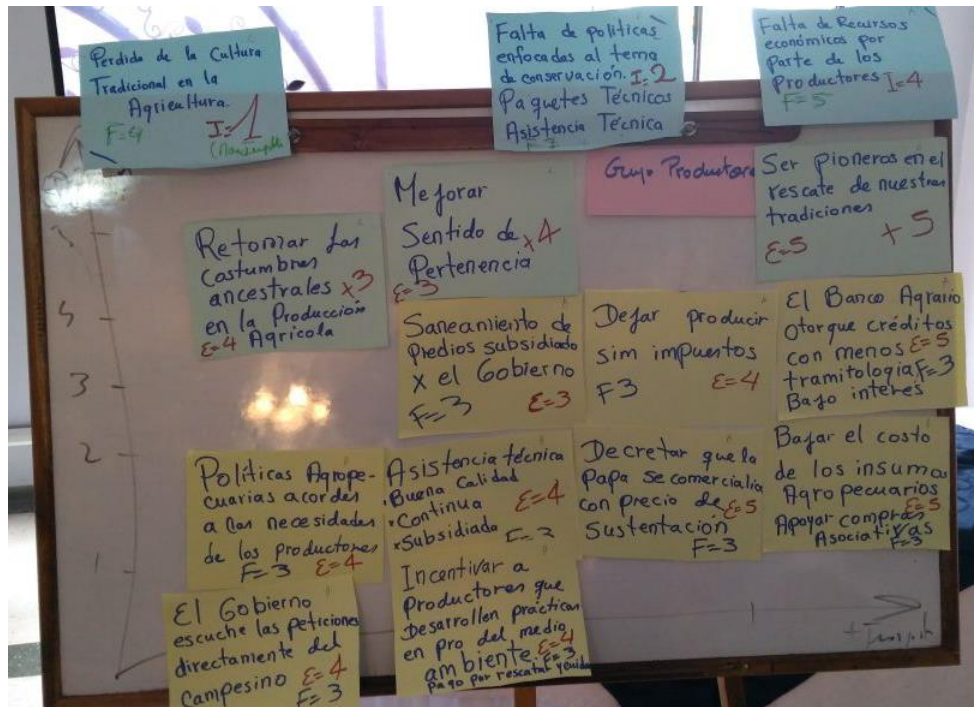 Perdida de la Cultura
Tradicional en la
Agricultura.
F=4 I=1
Falta de politicas
enfocadas al tema
de conservación. I=2
Paquetes Técnicos
Asistencia Técnica
Falta de Recursos
económicos por
Parte de los
Productores I=4
F=5
Grupo Productores
Retomar Las
costumbres
ancestrales x3
en la Producción
E=4 Agricola
Mejorar
Sentido de x4
Pertenencia
E=3
Ser pioneros en el
rescate de nuestras
tradiciones
E=5 +5
Saneamiento de
Predios subsidiado
X el Gobierno
F=3 E=3
Dejar producir
sim impuestos
F3 E=4
El Banco Agrario
otorgue créditos
con menos E=5
tramitología F=3
Bajo interés
Políticas Agrope-
cuarias acordes
a las necesidades
de los productores
F=3 E=4
Asistencia técnica
Buena Calidad
Continua E=4
Subsidiada
Decretar que la
Papa se comercialia
con precio de E=5
Sustentación
F=3
Bajar el costo
de los insumos
Agropecuarios
E=5
Apoyar compras
Asociativas
F=3
El Gobierno
escuche las peticiones
directamente del
Campesino E=4
F=3
Incentivar a
Productores que
Desarrollen prácticas
en pro del medio
ambiente E=4
F=3
pago por rescatar y cuidar
5
3
2
1